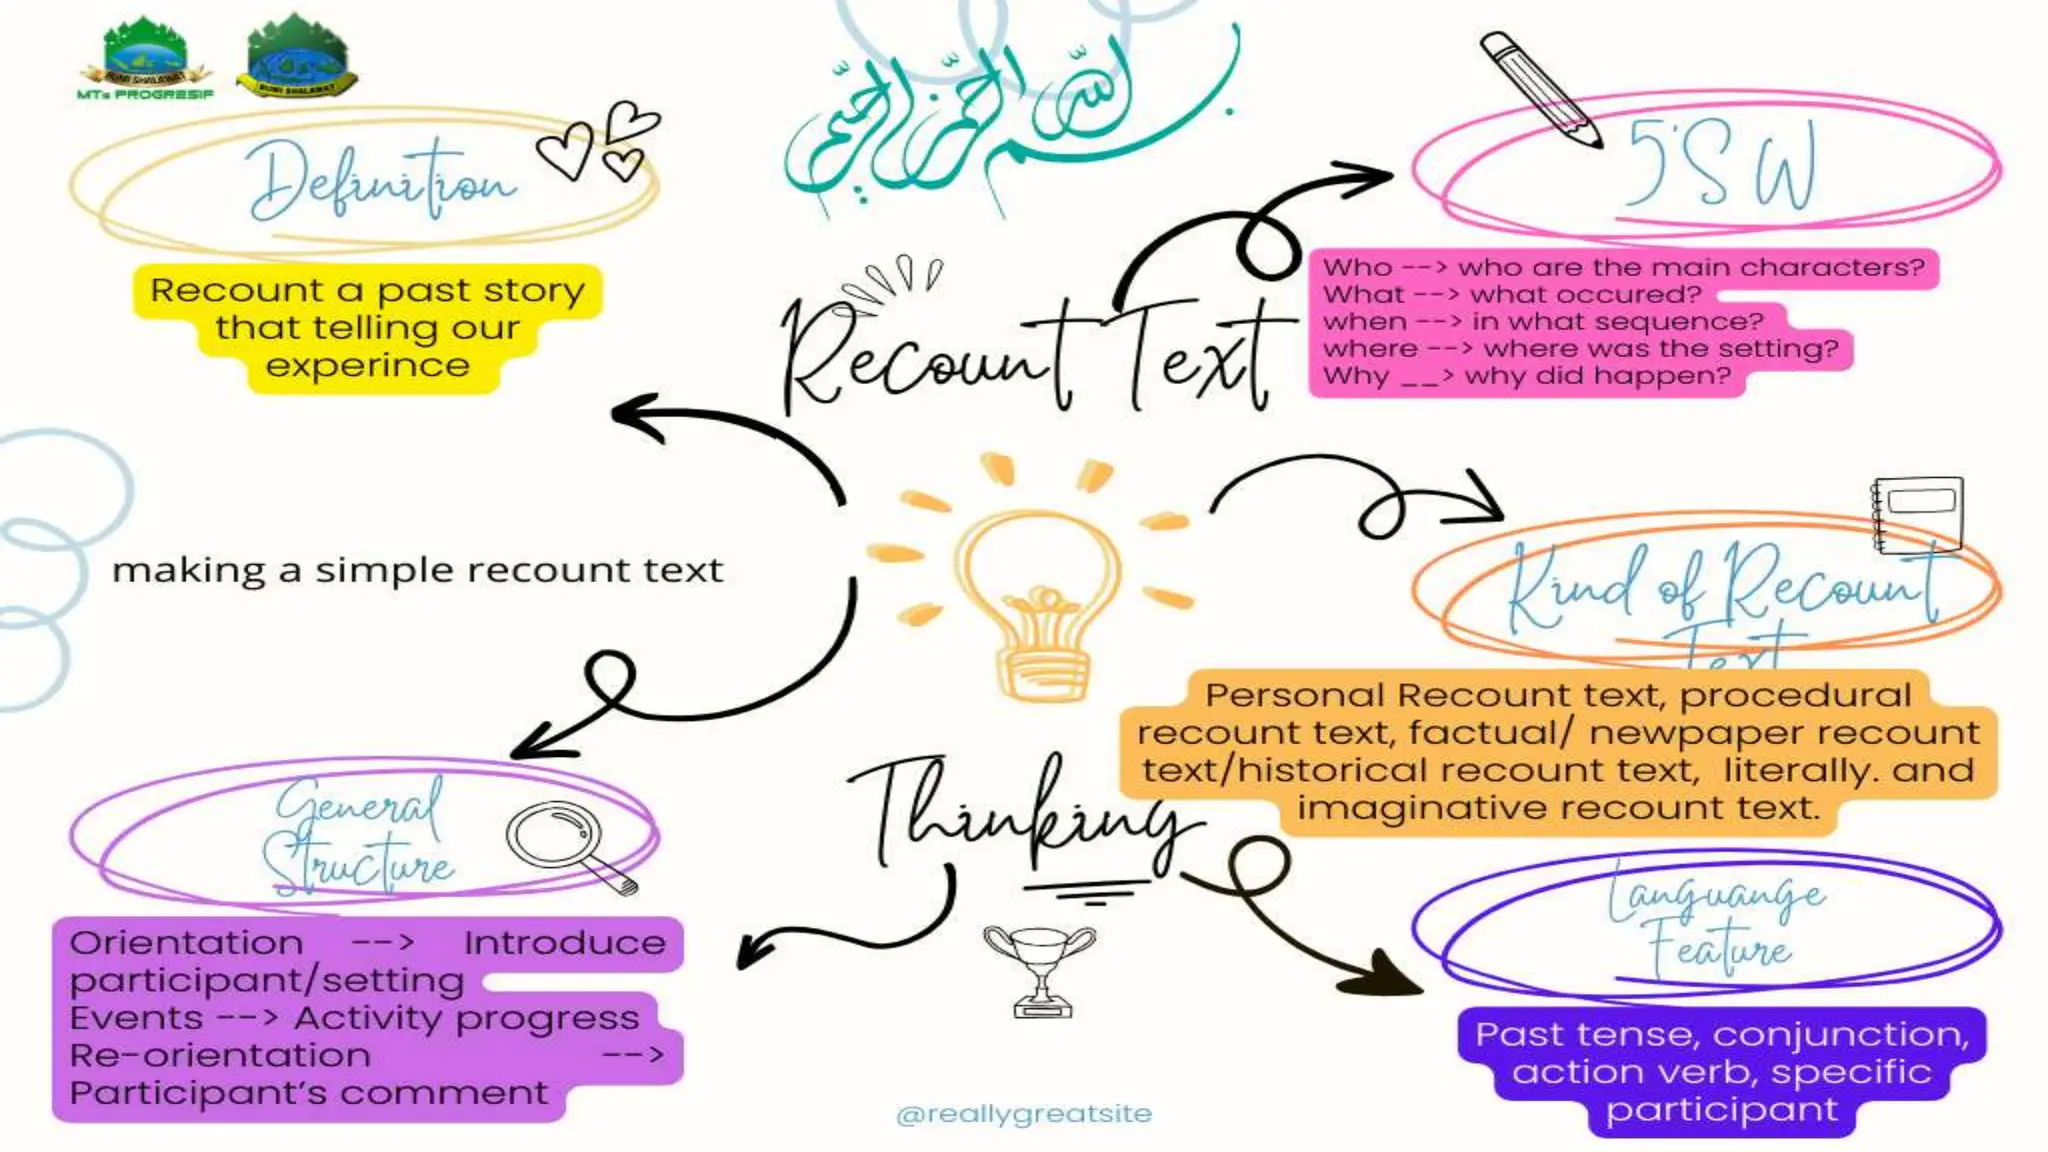 BUMI SHALAWAT
MTs PROGRESIF
BUMI SHALAWAT
بسم الله الرحمن الرحيم
Definition
Recount a past story
that telling our
experince
Recount Text
5'S W
Who --> who are the main characters?
What --> what occured?
when --> in what sequence?
where --> where was the setting?
Why __> why did happen?
making a simple recount text
Kind of Recount
Text
Personal Recount text, procedural
recount text, factual/ newpaper recount
text/historical recount text, literally. and
imaginative recount text.
Thinking
General
Structure
Orientation --> Introduce
participant/setting
Events --> Activity progress
Re-orientation -->
Participant's comment
Languange
Feature
Past tense, conjunction,
action verb, specific
participant
@reallygreatsite